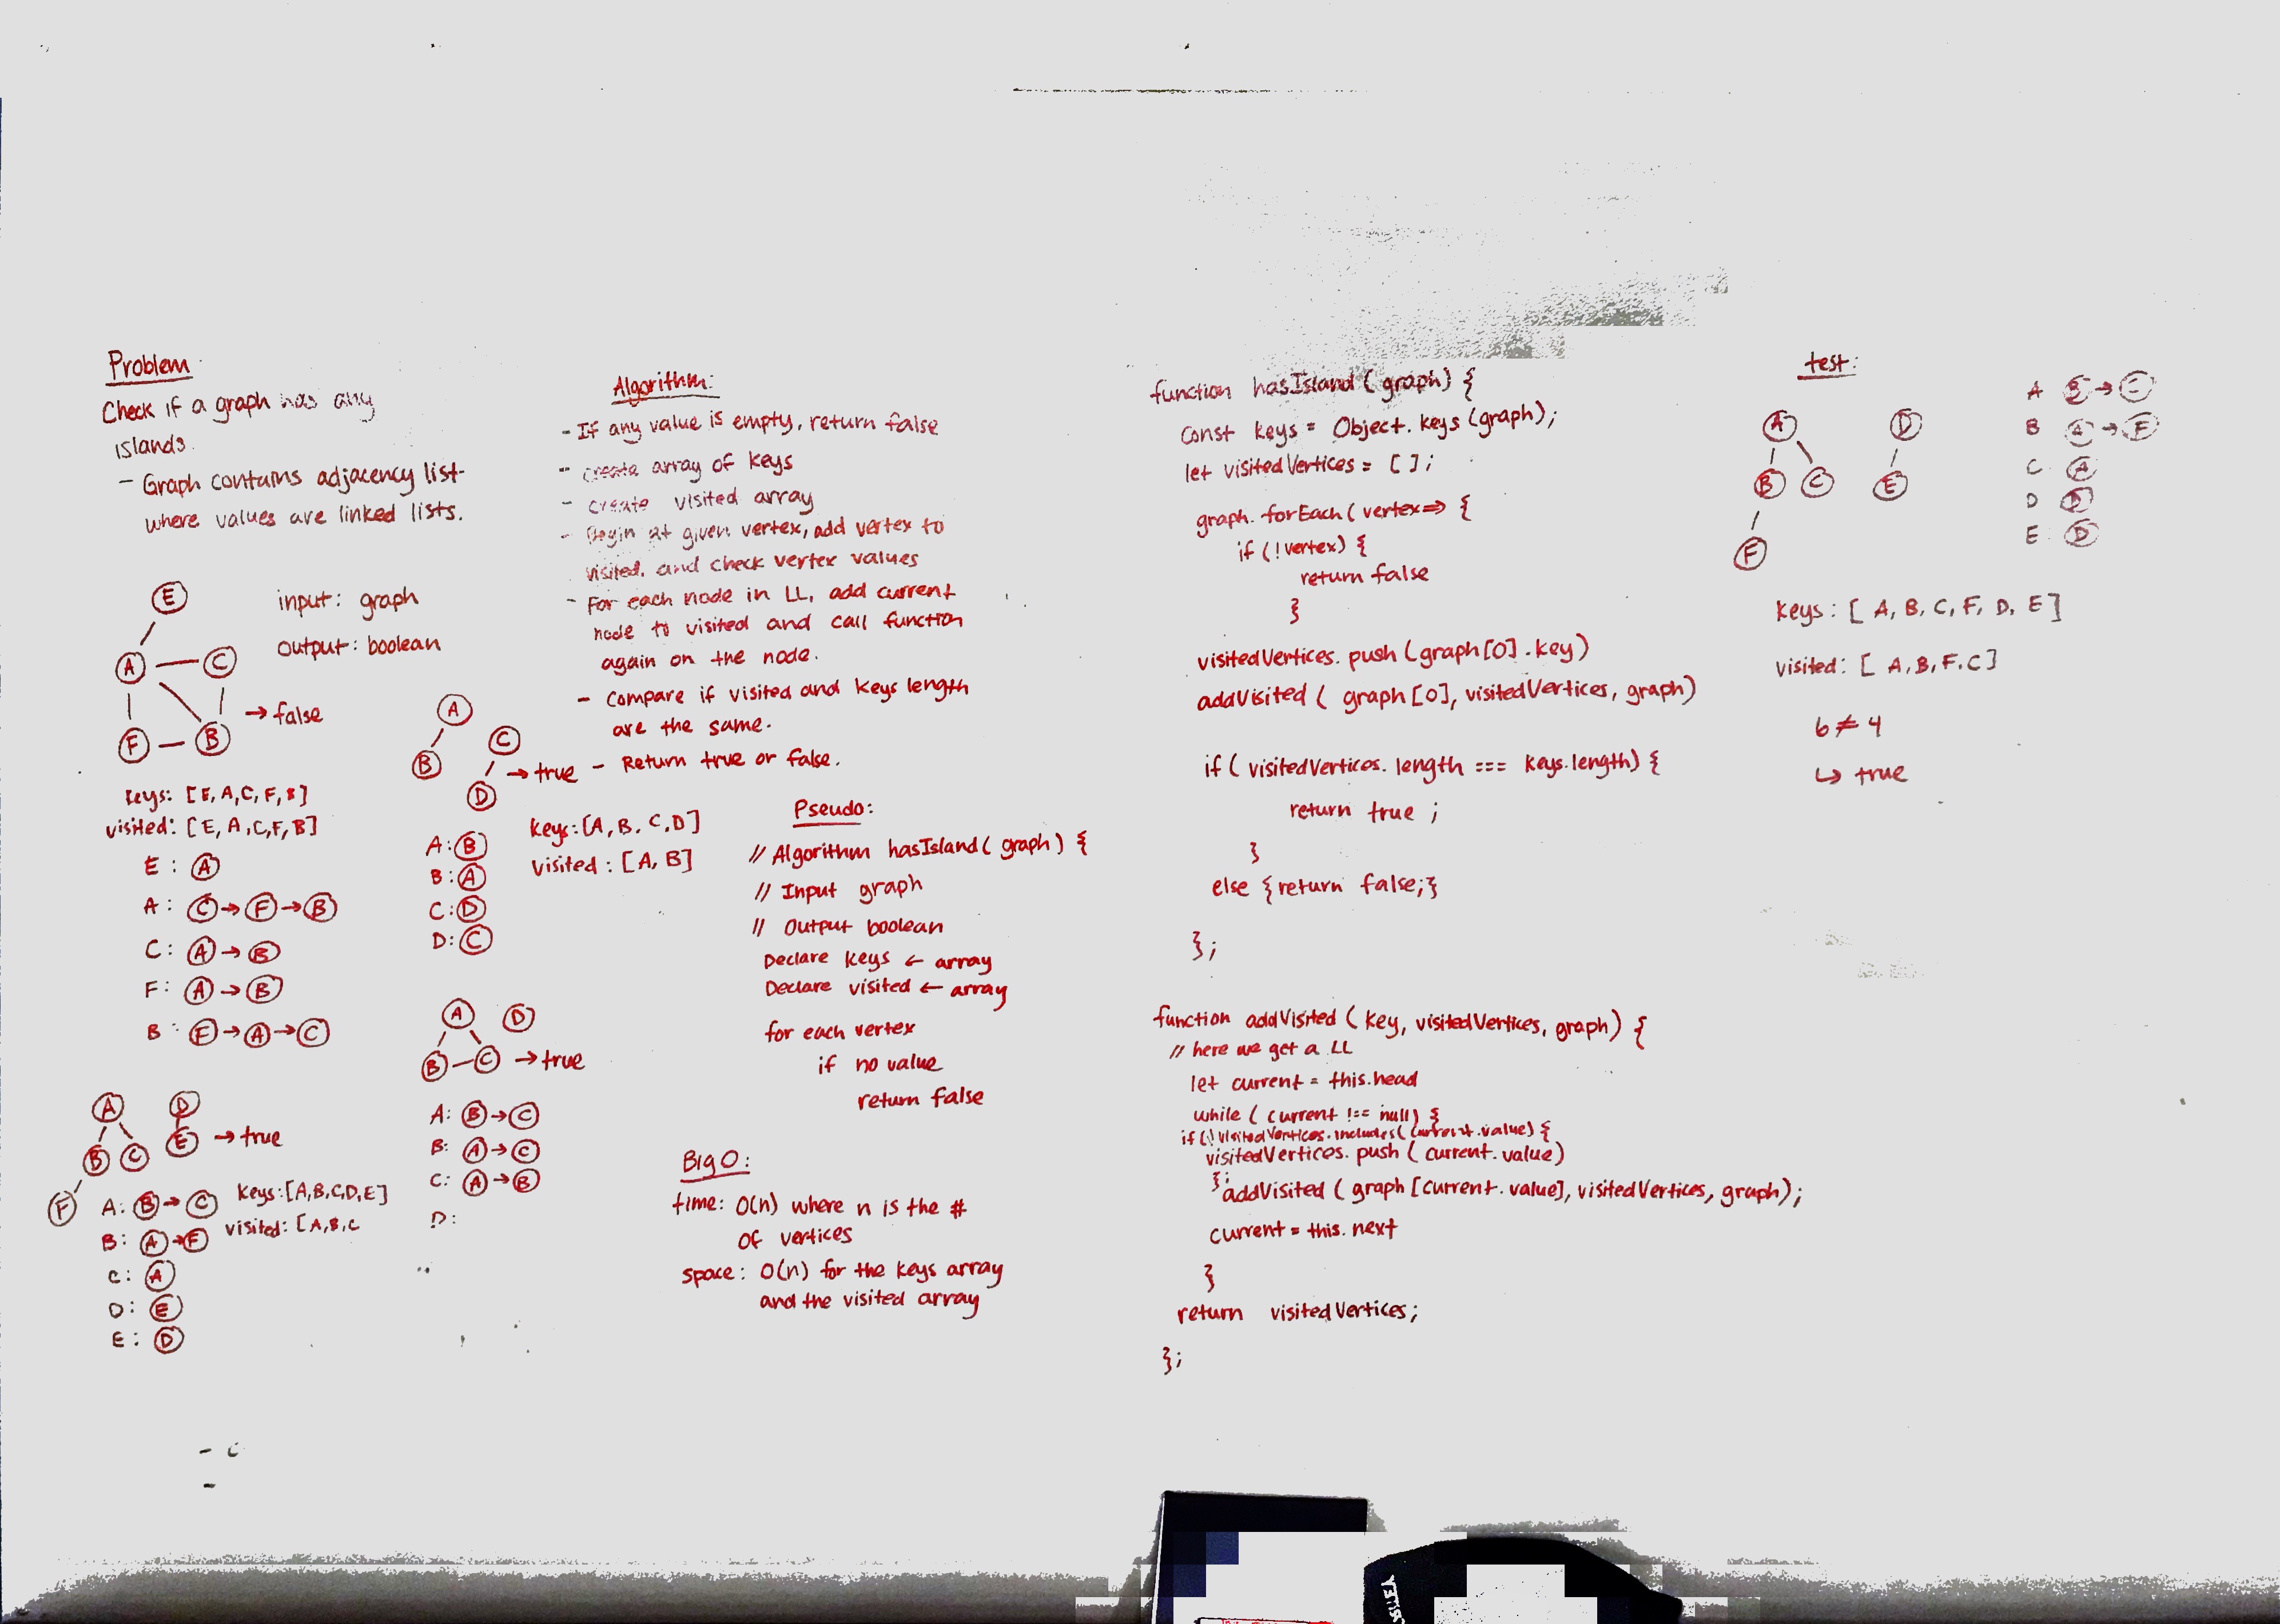 Problem
Check if a graph has any
islands.
- Graph contains adjacency list-
where values are linked lists.
input: graph
output: boolean
E
A C
F B
→ false
keys: [E, A, C, F, B]
visited: [E, A, C, F, B]
E: A
A: C → F → B
C: A → B
F: A → B
B: F → A → C
A D
B C E → true
F
A: B → C
B: A → F
C: A
D: E
E: D
keys: [A, B, C, D, E]
visited: [A, B, C
A
B C
D → true
keys: [A, B, C, D]
visited: [A, B]
A: B
B: A
C: D
D: C
A D
B C → true
A: B → C
B: A → C
C: A → B
D:
Algorithm:
- If any value is empty, return false
- create array of keys
- create visited array
- Begin at given vertex, add vertex to
visited, and check vertex values
- For each node in LL, add current
node to visited and call function
again on the node.
- Compare if visited and keys length
are the same.
- Return true or false.
Pseudo:
// Algorithm hasIsland( graph) {
// Input graph
// Output boolean
Declare keys ← array
Declare visited ← array
for each vertex
if no value
return false
Big O:
time: O(n) where n is the #
of vertices
space: O(n) for the keys array
and the visited array
function hasIsland ( graph) {
const keys = Object. keys (graph);
let visitedVertices = [ ];
graph. forEach ( vertex => {
if (!vertex) {
return false
}
visitedVertices. push (graph[0].key)
addVisited ( graph[0], visitedVertices, graph)
if ( visitedVertices. length === keys.length) {
return true ;
}
else {return false;}
};
function addVisited ( key, visitedVertices, graph) {
// here we get a LL
let current = this.head
while ( current !== null) {
if (!visitedVertices.includes( current.value) {
visitedVertices. push ( current.value)
};
addVisited ( graph [current.value], visitedVertices, graph);
current = this. next
}
return visitedVertices;
};
test:
A D
B C E
F
A B → C
B A → F
C A
D
E D
keys: [ A, B, C, F, D, E ]
visited: [ A, B, F, C ]
6 ≠ 4
↳ true
- c
-